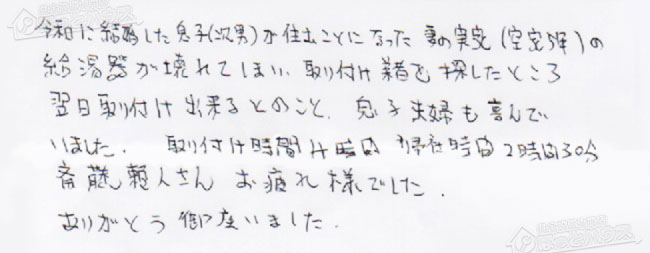 令和に結婚した息子(次男)が住むことになった妻の実家(空室5年)の
給湯器が壊れてしまい、取り付け業者を探したところ
翌日取り付け出来るとのこと、息子夫婦も喜んで
いました. 取り付け時間 時間 2時間30分
斎藤頼人さん お疲れ様でした.
ありがとう御座いました.